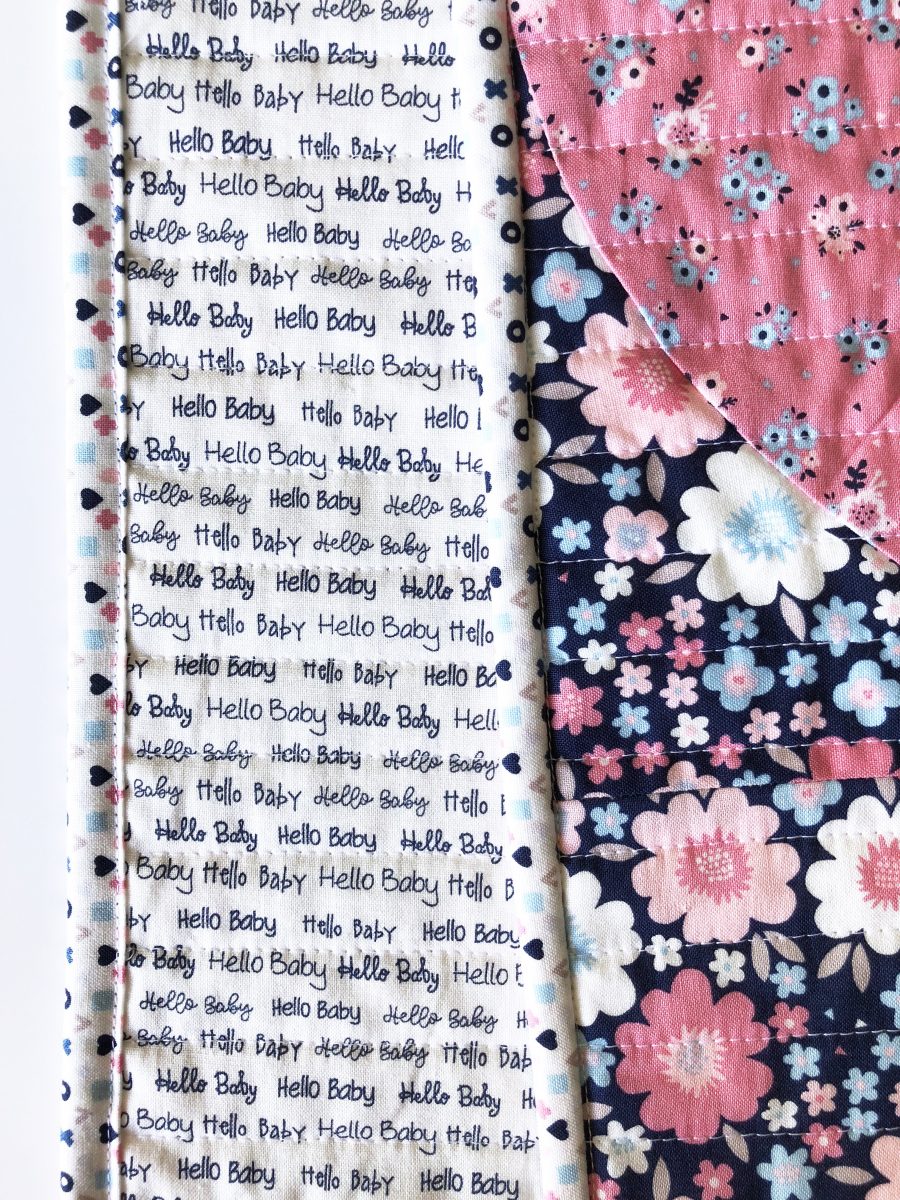 Baby Hello Baby Hello Baby
Hello Baby Hello Baby Hello
Baby Hello Baby Hello Baby
Hello Baby Hello Baby Hello
Baby Hello Baby Hello Baby
Hello Baby Hello Baby Hello
Baby Hello Baby Hello Baby
Hello Baby Hello Baby Hello
Baby Hello Baby Hello Baby
Hello Baby Hello Baby Hello
Baby Hello Baby Hello Baby
Hello Baby Hello Baby Hello
Baby Hello Baby Hello Baby Hello
Hello Baby Hello Baby Hello
Baby Hello Baby Hello Baby Hello
Hello Baby Hello Baby Hello
Baby Hello Baby Hello Baby Hello
Hello Baby Hello Baby Hello Baby
Baby Hello Baby Hello Baby Hello
Hello Baby Hello Baby Hello Baby
Baby Hello Baby Hello Baby Hello
Hello Baby Hello Baby Hello Baby
Baby Hello Baby Hello Baby Hello
Hello Baby Hello Baby Hello Baby
Baby Hello Baby Hello Baby Hello
Hello Baby Hello Baby Hello Baby
Baby Hello Baby Hello Baby Hello
Hello Baby Hello Baby Hello Baby